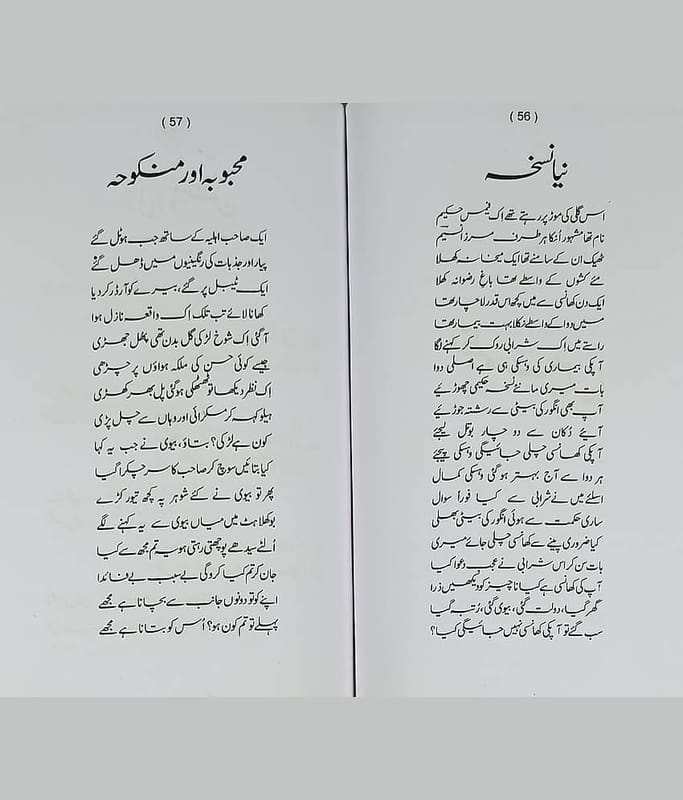 ( 56 )
نیا نسخہ
اس گلی کی موڑ پر رہتے تھے اک فیمس حکیم
نام تھا مشہور اُنکا ہر طرف مرزا نسیم
ٹھیک ان کے سامنے تھا ایک میخانہ کھلا
مئے کشوں کے واسطے تھا باغِ رضوانہ کھلا
ایک دن کھانسی سے میں کچھ اس قدر لاچار تھا
میں دوا کے واسطے نکلا بہت بیمار تھا
راستے میں اک شرابی روک کر کہنے لگا
آپکی بیماری کی وسکی ہی ہے اصلی دوا
بات میری مانئے نسخہ حکیمی چھوڑیئے
آپ بھی انگور کی بیٹی سے رشتہ جوڑیئے
آیئے دُکان سے دو چار بوتل لیجئے
آپکی کھانسی چلی جائیگی وسکی پیجئے
ہر دوا سے آج بہتر ہو گئی وسکی کمال
اسلئے میں نے شرابی سے کیا فوراً سوال
ساری حکمت سے ہوئی انگور کی بیٹی بھلی
کیا ضروری پینے سے کھانسی چلی جائے میری
بات سن کر اس شرابی نے عجب دعوا کیا
آپ کی کھانسی ہے کیا ناچیز کو دیکھیں ذرا
گھر گیا، دولت گئی، بیوی گئی، رُتبہ گیا
سب گئے تو آپکی کھانسی نہیں جائیگی کیا؟
( 57 )
محبوبہ اور منکوحہ
ایک صاحب اہلیہ کے ساتھ جب ہوٹل گئے
پیار اور جذبات کی رنگینیوں میں ڈھل گئے
ایک ٹیبل پر گئے، بیرے کو آرڈر کر دیا
کھانا لائے تب تلک اک واقعہ نازل ہوا
آ گئی اک شوخ لڑکی گل بدن تھی پھل جھڑی
جیسے کوئی حسن کی ملکہ ہواؤں پر چڑھی
اک نظر دیکھا تو ٹھٹھکی ہو گئی پل بھر کھڑی
ہیلو کہہ کر مسکرائی اور وہاں سے چل پڑی
کون ہے لڑکی؟ بتاؤ، بیوی نے جب یہ کہا
کیا بتائیں سوچ کر صاحب کا سر چکرا گیا
پھر تو بیوی نے کئے شوہر پہ کچھ تیور کڑے
بوکھلاہٹ میں میاں بیوی سے یہ کہنے لگے
اُلٹے سیدھے پوچھتی رہتی ہو یہ تم مجھ سے کیا
جان کر تم کیا کرو گی بے سبب بے فائدا
اپنے کو تو دونوں جانب سے بچانا ہے مجھے
پہلے تو تم کون ہو؟ اُس کو بتانا ہے مجھے